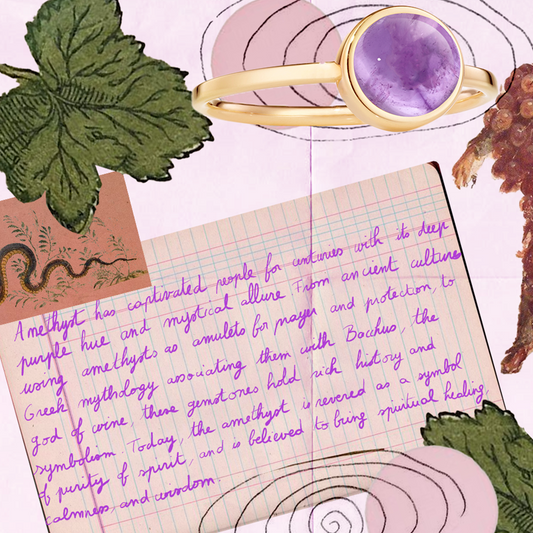 Amethyst has captivated people for centuries with its deep
purple hue and mystical allure From ancient cultures
using amethysts as amulets for prayer and protection, to
Greek mythology associating them with Bacchus, the
god of wine, these gemstones hold rich history and
symbolism Today, the amethyst is revered as a symbol
of purity of spirit, and is believed to bring spiritual healing,
calmness, and wisdom.